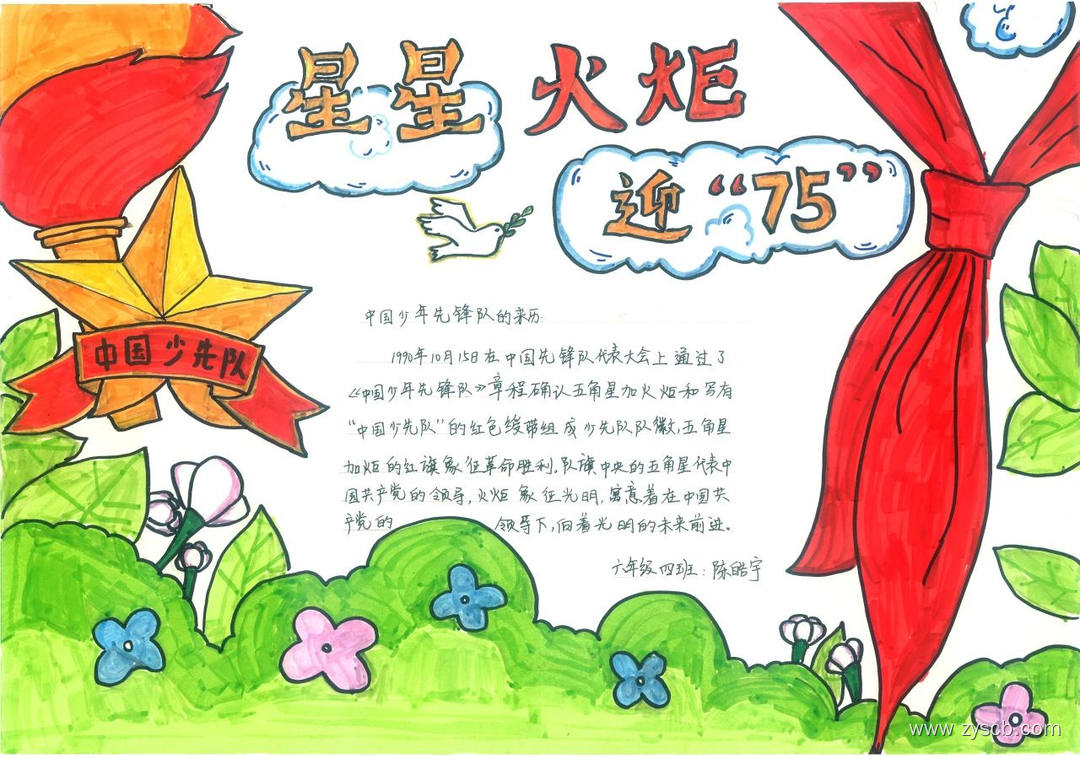 星星火炬
迎“75”
中国少先队
中国少年先锋队的来历:
1990年10月15日在中国先锋队代表大会上通过了
《中国少年先锋队》章程确认五角星加火炬和写有
“中国少先队”的红色绶带组成少先队队徽,五角星
加炬的红旗象征革命胜利,队旗中央的五角星代表中
国共产党的领导,火炬象征光明,寓意着在中国共
产党的 领导下,向着光明的未来前进。
六年级四班:陈皓宇
www.zyscb.com